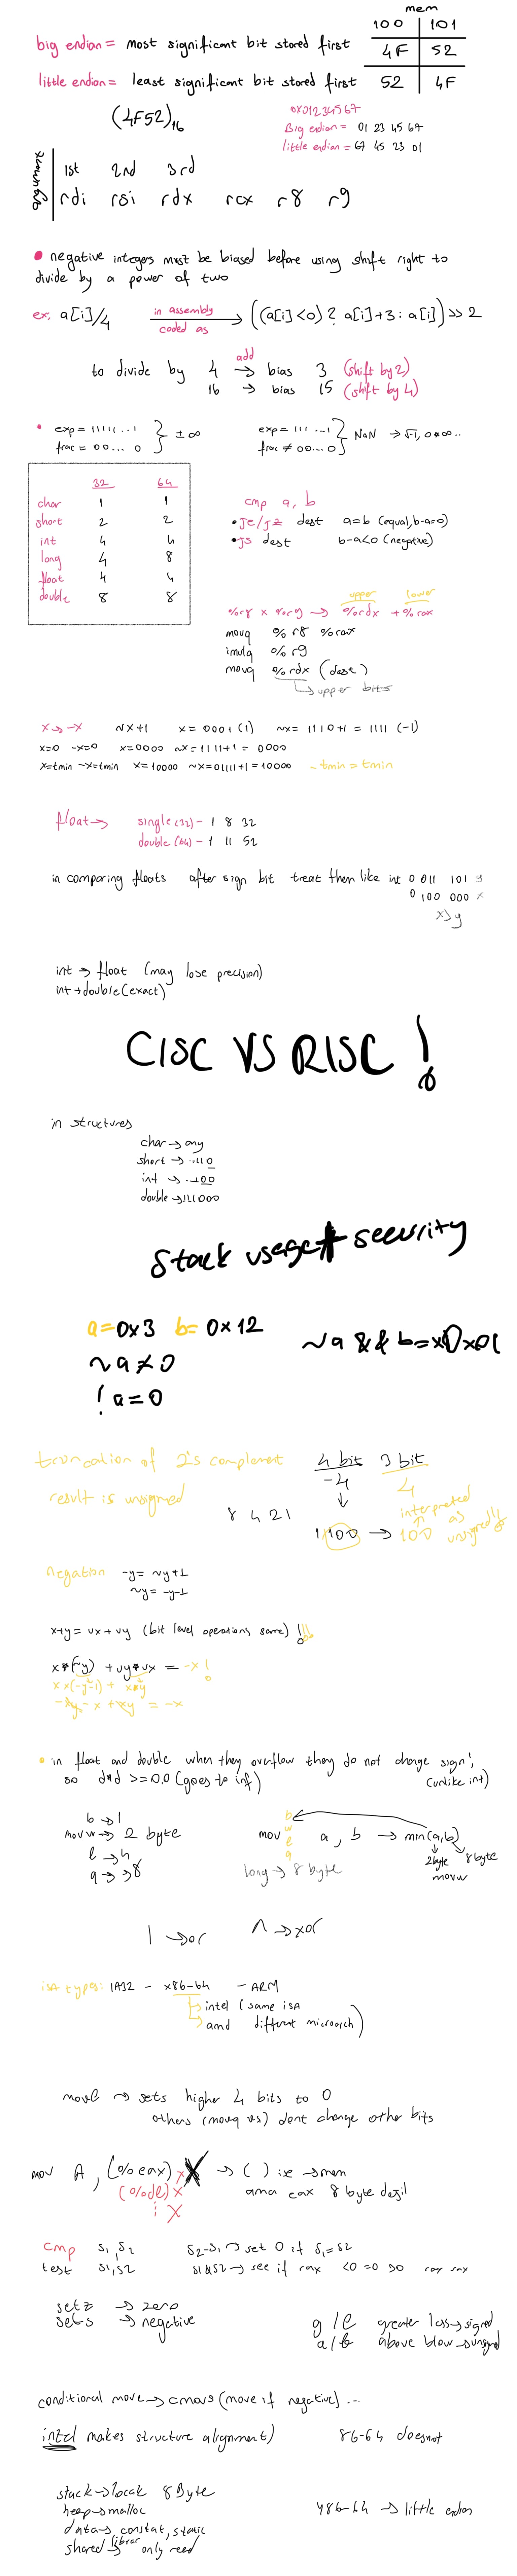 mem
100 101
big endian = most significant bit stored first 4F 52
little endian = least significant bit stored first 52 4F
(4F52)16
0x01234567
Big endian = 01 23 45 67
little endian = 67 45 23 01
1st 2nd 3rd
rdi rsi rdx rcx r8 r9
• negative integers must be biased before using shift right to
divide by a power of two
ex: a[i]/4 in assembly coded as → ((a[i]<0) ? a[i]+3 : a[i]) >> 2
add
to divide by 4 → bias 3 (shift by 2)
16 → bias 15 (shift by 4)
• exp = 11111...1 } ± ∞ exp = 111...1 } NaN → √-1, 0*∞..
frac = 00...0 frac ≠ 00...0
32 64
char 1 1
short 2 2
int 4 4
long 4 8
float 4 4
double 8 8
cmp a, b
• je/jz dest a=b (equal, b-a=0)
• js dest b-a<0 (negative)
upper lower
%r8 x %r9 → %rdx + %rax
movq %r8 %rax
imulq %r9
movq %rdx (dest)
↳ upper bits
x → -x ~x+1 x = 0001 (1) ~x = 1110+1 = 1111 (-1)
x=0 -x=0 x=0000 ~x=1111+1 = 0000
x=tmin -x=tmin x=10000 ~x=01111+1=10000 -tmin = tmin
float → single (32) - 1 8 32
double (64) - 1 11 52
in comparing floats after sign bit treat them like int 0 011 101 y
0 100 000 x
x>y
int → float (may lose precision)
int → double (exact)
CISC VS RISC !
in structures
char → any
short → ...110
int → ...100
double → 111000
stack usage + security
a = 0x3 b = 0x12
~a ≠ 0 ~a && b = x0x01
! a = 0
truncation of 2's complement 4 bit 3 bit
-4 4
result is unsigned ↓ interpreted as unsigned!!
8 4 2 1
1100 → 100
negation -y = ~y+1
~y = -y-1
x+y = ux + uy (bit level operations same) !!
x*(~y) + uy*ux = -x !
x*(-y-1) + x*y
-xy - x + xy = -x
• in float and double when they overflow they do not change sign!,
so d*d >= 0.0 (goes to inf) (unlike int)
b → 1
movw → 2 byte
l → 4
q → 8
b
w
l
q
mov a, b → min(a,b)
2byte 8byte
movw
long → 8 byte
| → or ^ → xor
isA types: IA32 - x86-64 - ARM
↳ intel (same isA
↳ amd different microarch)
movl → sets higher 4 bits to 0
others (movq vs) dont change other bits
mov A, (%eax) X → ( ) ise → mem
(%dl) x ama eax 8 byte degil
: X
cmp s1, s2 s2-s1 → set 0 if s1=s2
test s1, s2 s1&s2 → see if rax <0 =0 >0 rax rax
setz → zero
sets → negative
g / l greater less → signed
a / b above blow → unsigned
conditional move → cmovs (move if negative) ...
intel makes structure alignment) 86-64 doesnot
stack → local 8 Byte
heap → malloc
data → constat, static
shared → librar only reed
x86-64 → little endian